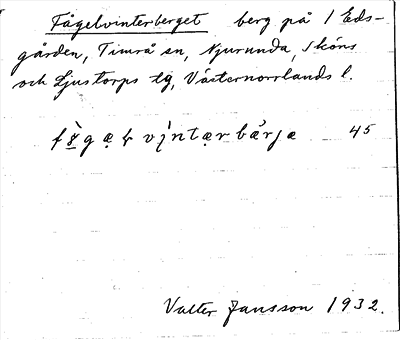 Fågelvinterberget berg på 1 Eds-
gården, Timrå sn, Njurunda, Sköns
och Ljustorps tg, Västernorrlands l.
45
Valter Jansson 1932.